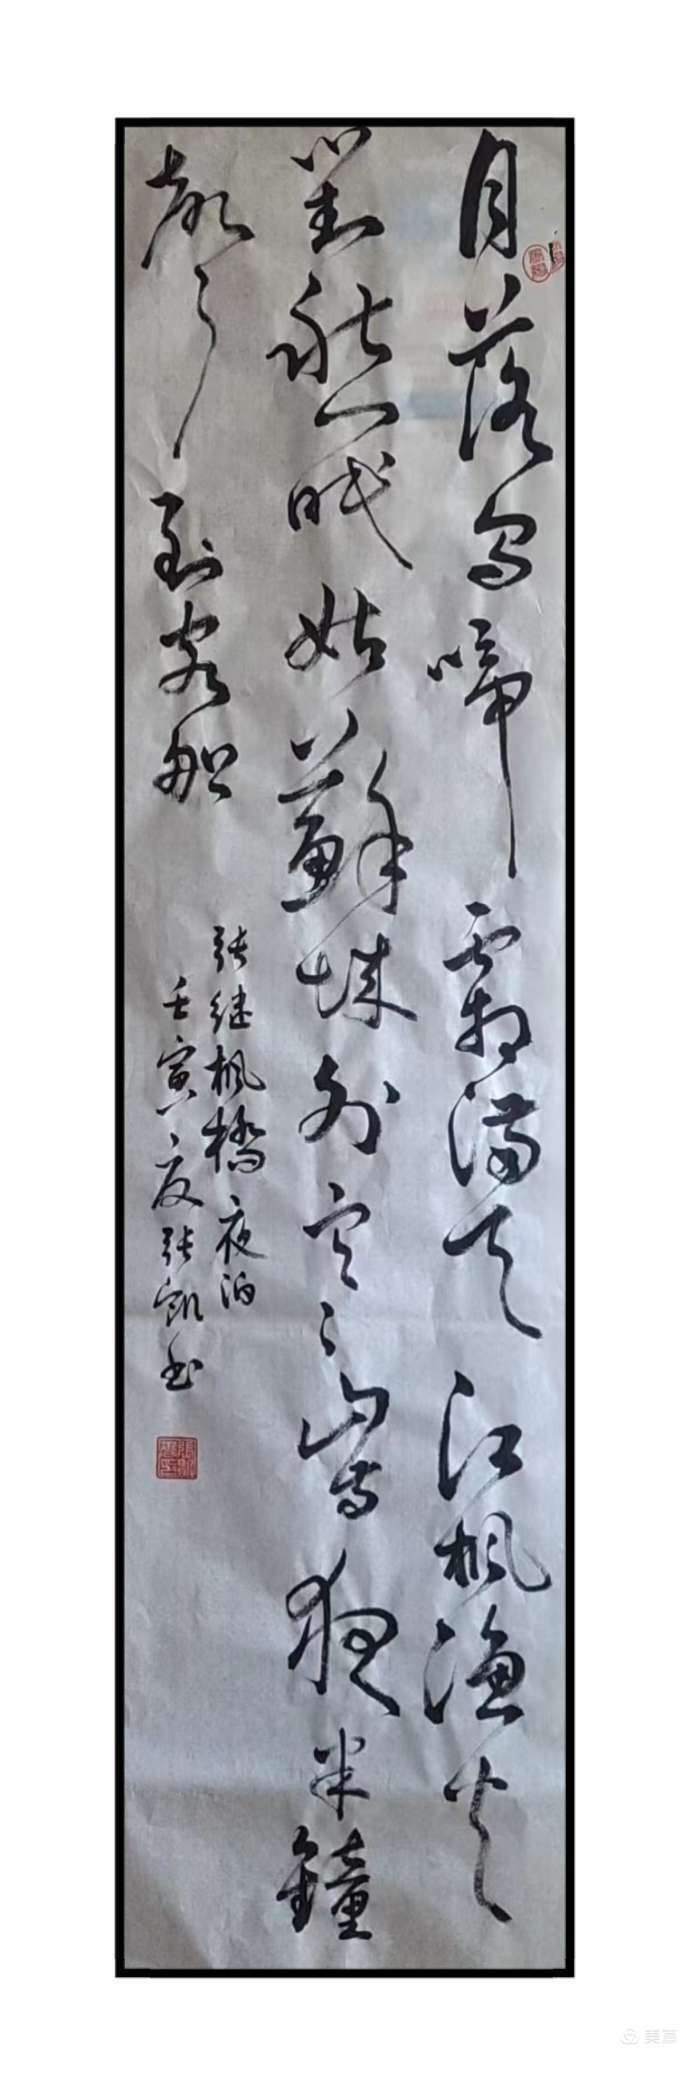 月落烏啼霜滿天江枫漁火
對愁眠姑蘇城外寒山寺夜半鐘
聲到客船
张继枫橋夜泊
壬寅夏张凯书
美篇